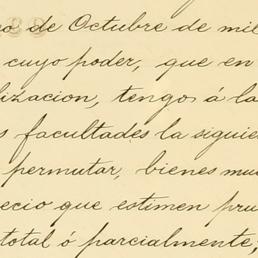 ro de Octubre de mil
cuyo poder, que en
lizacion, tengo á la
s facultades la siguie
permutar, bienes mue
ecio que estimen pru
total ó parcialmente,